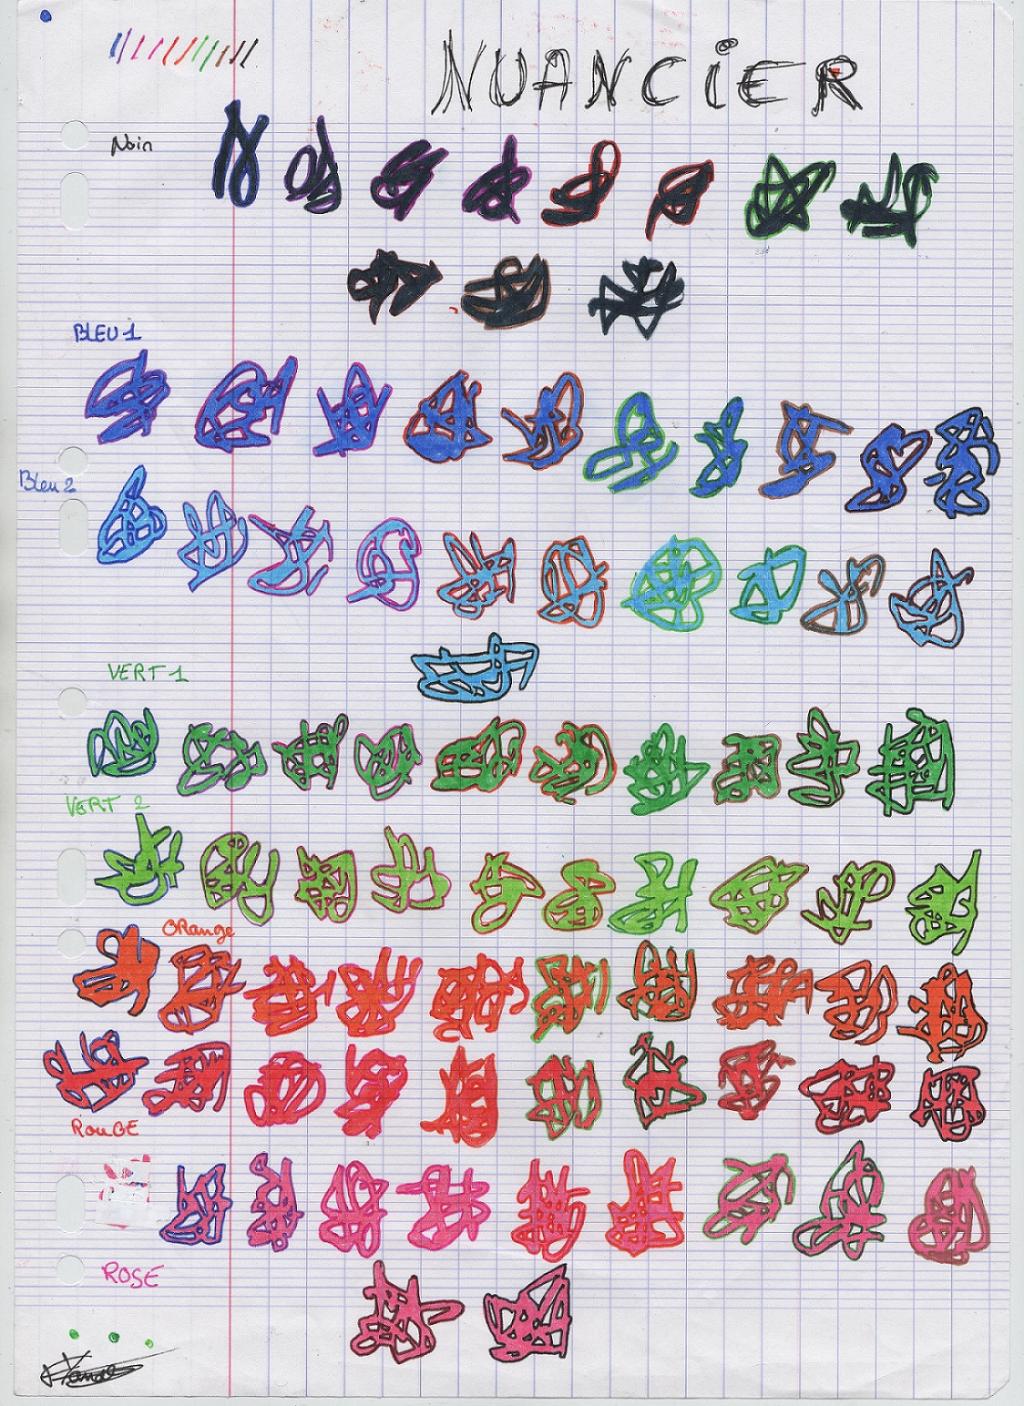 NUANCiER
Noir
BLEU 1
Bleu 2
VERT 1
VERT 2
ORange
RouGE
ROSE